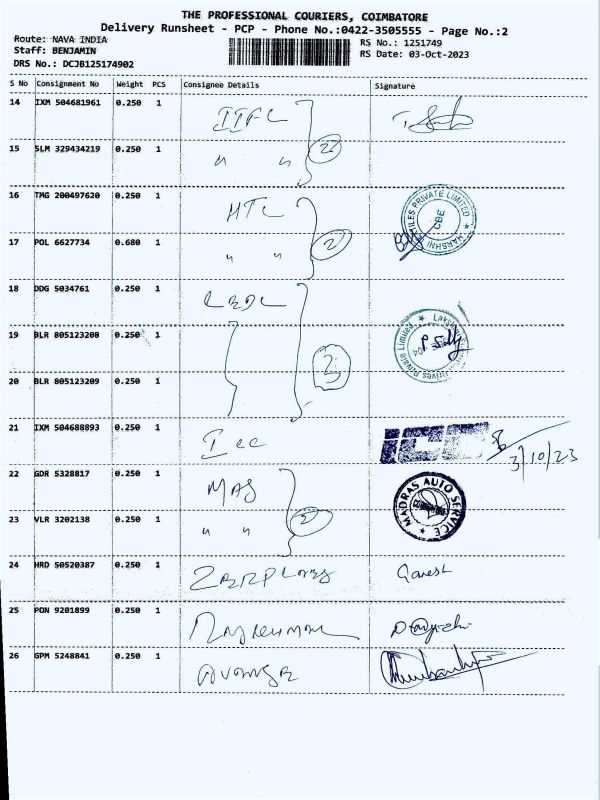 THE PROFESSIONAL COURIERS, COIMBATORE
Delivery Runsheet - PCP - Phone No.:0422-3505555 - Page No.:2
Route: NAVA INDIA
RS No.: 1251749
Staff: BENJAMIN
RS Date: 03-Oct-2023
DRS No.: DCJB125174902
S No Consignment No Weight PCS Consignee Details Signature
14 IXM 504681961 0.250 1 IIFL
15 SLM 329434219 0.250 1 " " 2
16 TMG 200497620 0.250 1 HTL
17 POL 6627734 0.680 1 " " 2
HARSHNI TEXTILES PRIVATE LIMITED
CBE
18 DDG 5034761 0.250 1
19 BLR 805123208 0.250 1
Private Limited
20 BLR 805123209 0.250 1 3
21 IXM 504688893 0.250 1 ICC ICC
3/10/23
22 GDR 5328817 0.250 1 MAS
23 VLR 3202138 0.250 1 " " 2
MADRAS AUTO SERVICE
24 HRD 50520387 0.250 1 Ganesh
25 PON 9201899 0.250 1
26 GPM 5248841 0.250 1